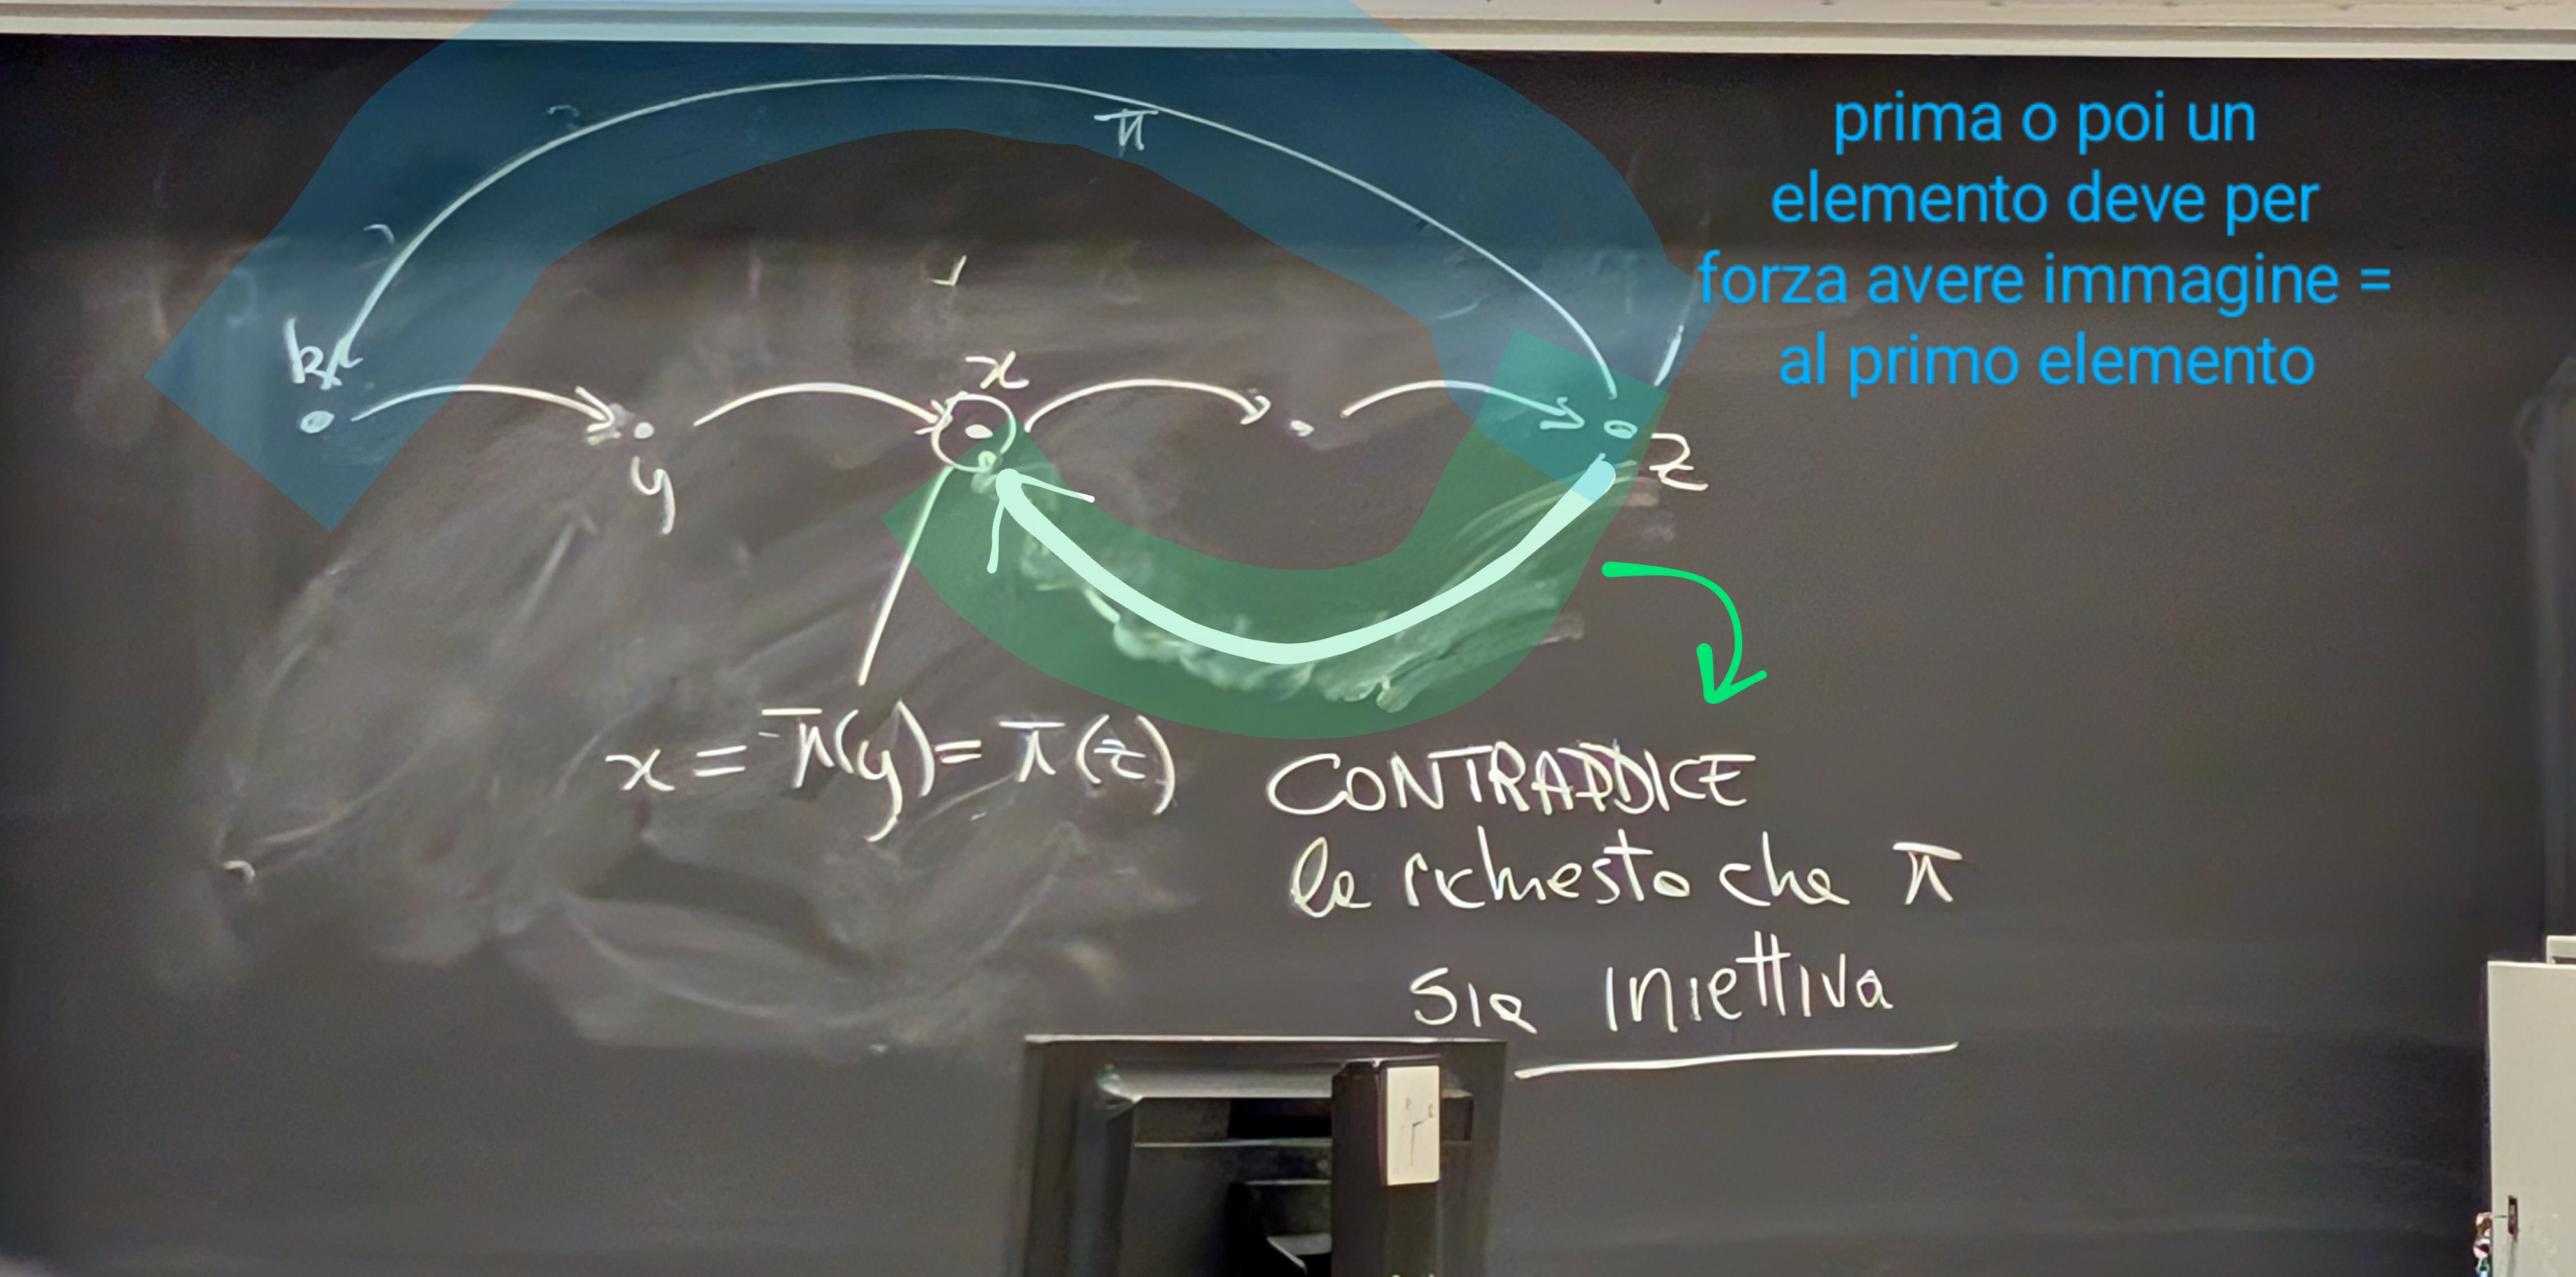 prima o poi un
elemento deve per
forza avere immagine =
al primo elemento
π
k
x
y
z
x = π(y) = π(z)
CONTRADDICE
la richiesta che π
sia iniettiva